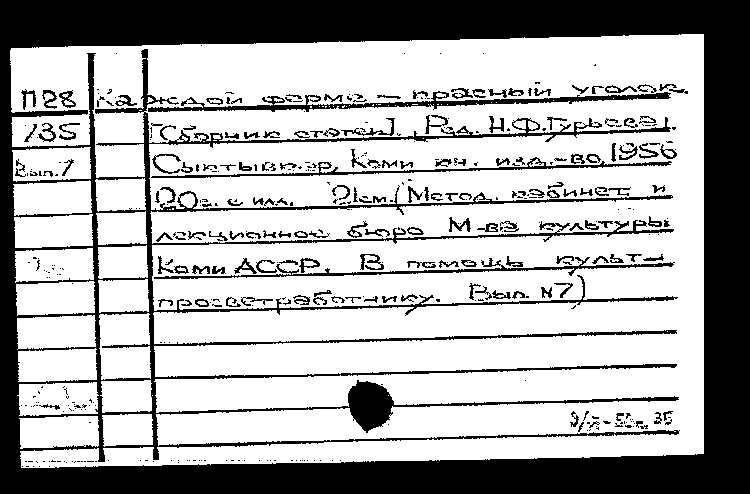 П28 Каждой ферме – красный уголок.
135 [Сборник статей]. [Ред. Н.Ф.Гурьева].
Вып.7 Сыктывкар, Коми кн. изд.-во, 1956
20с. с илл. 21см. (Метод. кабинет и
лекционное бюро М-ва культуры
Коми АССР. В помощь культ-
просветработнику. Вып. №7)
35